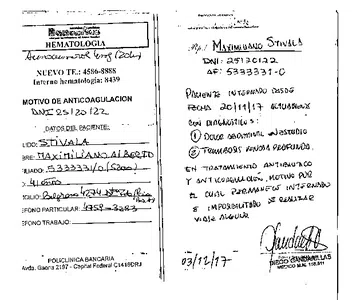 HEMATOLOGIA
NUEVO TE.: 4586-8888
Interno hematologia: 8439
MOTIVO DE ANTICOAGULACION
DNI 25120122
DATOS DEL PACIENTE:
STIVALA
MAXIMILIANO ALBERTO
5333331/0
41 años
FONO PARTICULAR:
FONO TRABAJO:
POLICLINICA BANCARIA
Avda. Gaona 2197 - Capital Federal C1416DRJ
Rp/ MAXIMILIANO STIVALA
DNI: 25120122
AF: 5333331-0
PACIENTE INTERNADO DESDE
FECHA 20/11/17
CON DIAGNÓSTICOS:
① DOLOR ABDOMINAL EN ESTUDIO
② TROMBOSIS VENOSA PROFUNDA.
EN TRATAMIENTO ANTIBIOTICO
Y ANTICOAGULACIÓN, MOTIVO POR
EL CUAL PERMANECE INTERNADO
E IMPOSIBILITADO DE REALIZAR
VIAJE ALGUNO.
03/12/17
DIEGO